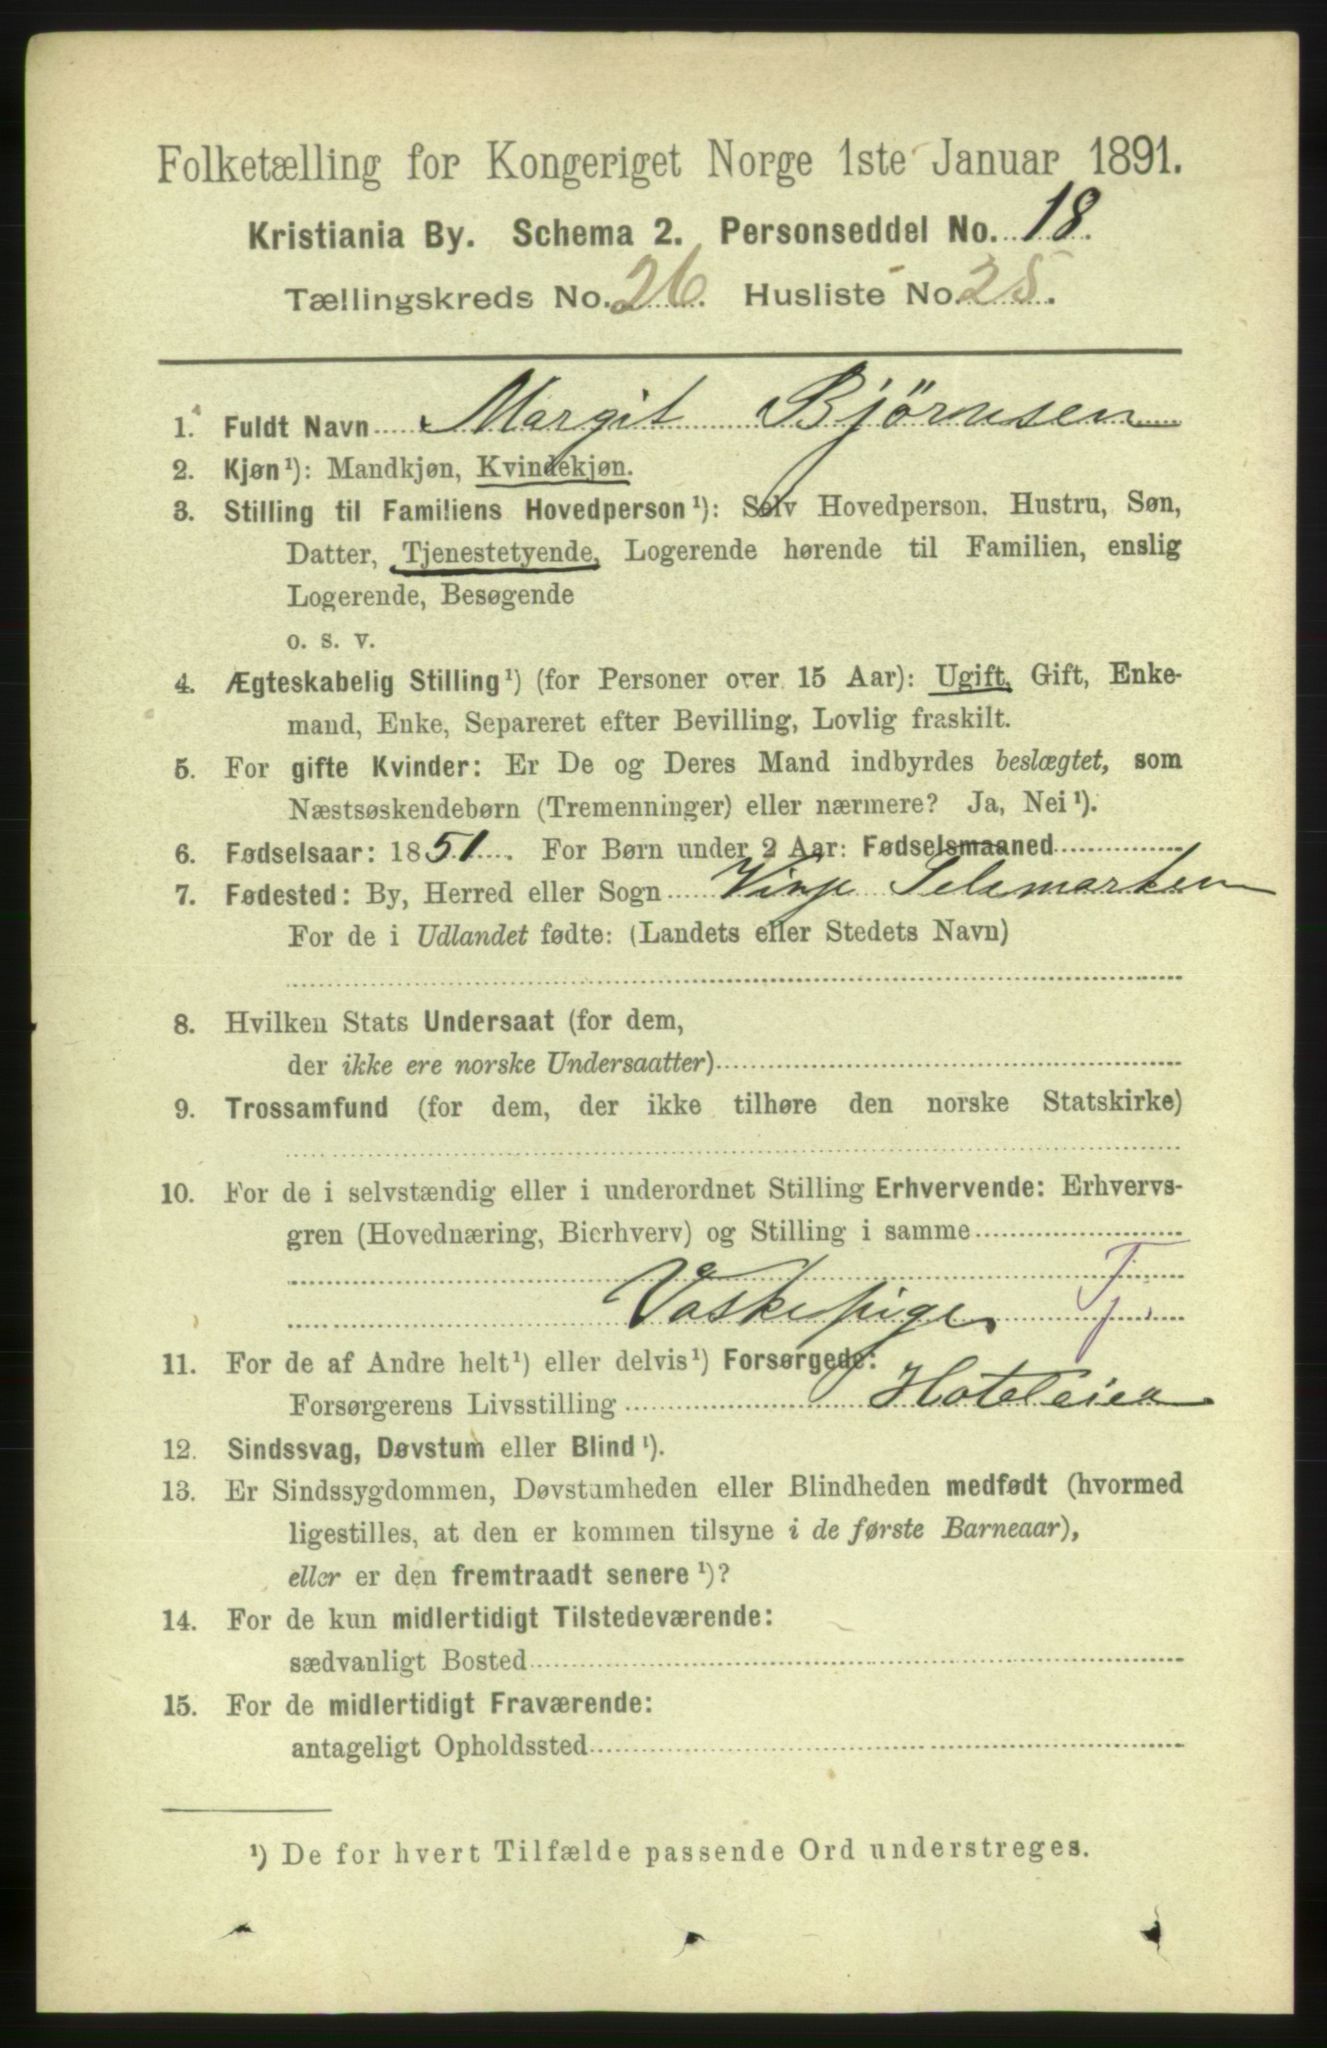 Folketælling for Kongeriget Norge 1ste Januar 1891.
Kristiania By. Schema 2. Personseddel No. 18.
Tællingskreds No. 26. Husliste No. 25.
1. Fuldt Navn Margit Bjørnsen
2. Kjøn¹): Mandkjøn, Kvindekjøn.
3. Stilling til Familiens Hovedperson¹): Selv Hovedperson. Hustru, Søn,
Datter, Tjenestetyende, Logerende hørende til Familien, enslig
Logerende, Besøgende
o. s. v.
4. Ægteskabelig Stilling¹) (for Personer over 15 Aar): Ugift, Gift, Enke-
mand, Enke, Separeret efter Bevilling, Lovlig fraskilt.
5. For gifte Kvinder: Er De og Deres Mand indbyrdes beslægtet, som
Næstsøskendebørn (Tremenninger) eller nærmere? Ja, Nei¹).
6. Fødselsaar: 1851. For Børn under 2 Aar: Fødselsmaaned
7. Fødested: By, Herred eller Sogn Vinje Telemarken
For de i Udlandet fødte: (Landets eller Stedets Navn)
8. Hvilken Stats Undersaat (for dem,
der ikke ere norske Undersaatter)
9. Trossamfund (for dem, der ikke tilhøre den norske Statskirke)
10. For de i selvstændig eller i underordnet Stilling Erhvervende: Erhvervs-
gren (Hovednæring, Bierhverv) og Stilling i samme
Vaskepige Tj
11. For de af Andre helt¹) eller delvis¹) Forsørgede:
Forsørgerens Livsstilling Hoteleier
12. Sindssvag, Døvstum eller Blind¹).
13. Er Sindssygdommen, Døvstumheden eller Blindheden medfødt (hvormed
ligestilles, at den er kommen tilsyne i de første Barneaar),
eller er den fremtraadt senere¹)?
14. For de kun midlertidigt Tilstedeværende:
sædvanligt Bosted
15. For de midlertidigt Fraværende:
antageligt Opholdssted
¹) De for hvert Tilfælde passende Ord understreges.